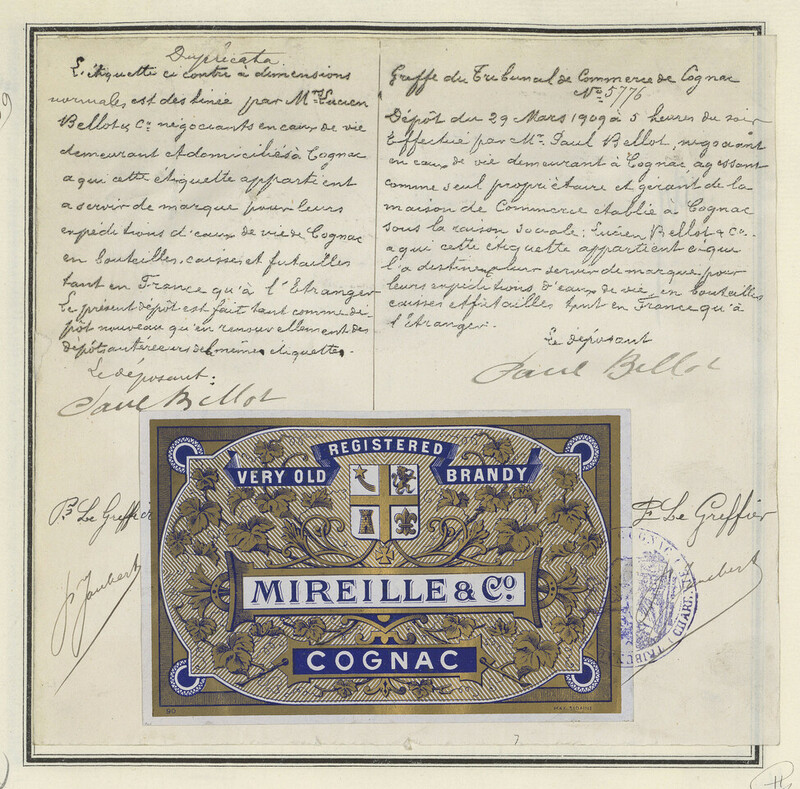 Duplicata
L'étiquette ci contre à dimensions
normales, est destinée par Mrs Lucien
Bellot & Co négociants en eaux de vie
demeurant et domiciliés à Cognac
a qui cette étiquette appartient
a servir de marque pour leurs
expéditions d'eaux de vie de Cognac
en bouteilles, caisses et futailles
tant en France qu'à l'Etranger
Le présent dépôt est fait tant comme dé-
pôt nouveau qu'en renouvellement des
dépôts antérieurs de mêmes étiquettes.
Le déposant:
Paul Bellot
Greffe du Tribunal de Commerce de Cognac
No 5776
Dépôt du 29 Mars 1909 à 5 heures du soir
Effectué par Mr. Paul Bellot, négociant
en eaux de vie demeurant à Cognac, agissant
comme seul propriétaire et gérant de la
maison de Commerce établie à Cognac
sous la raison sociale: Lucien Bellot & Co.
a qui cette étiquette appartient et qui
l'a destinée leur servir de marque pour
leurs expéditions d'eaux de vie, en bouteilles
caisses et futailles tant en France qu'à
l'étranger.
Le déposant
Paul Bellot
REGISTERED
VERY OLD BRANDY
MIREILLE & Co
COGNAC
90
Le Greffier
Joubert
Le Greffier
Joubert
COGNAC
TRIBUN
CHAR